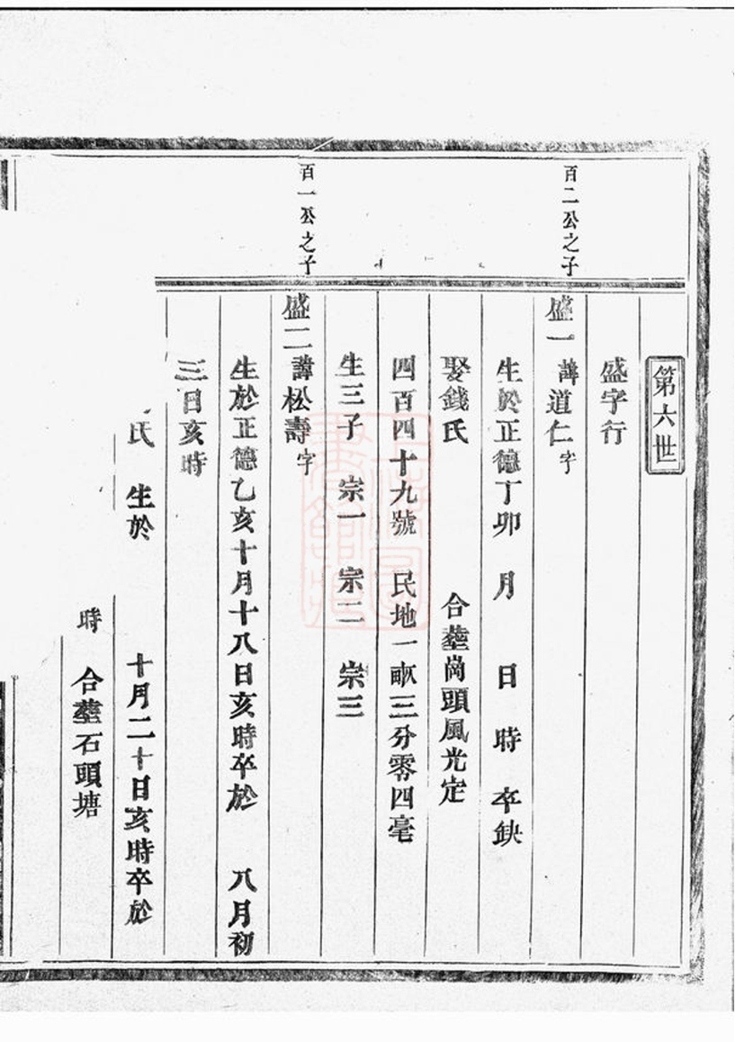 第六世
盛字行
百二公之子
盛一 諱道仁字
生於正德丁卯 月 日 時 卒缺
娶錢氏 合塟崗頭風光定
四百四十九號 民地一畝三分零四毫
生三子 宗一 宗二 宗三
百一公之子
盛二 諱松壽字
生於正德乙亥十月十八日亥時卒於 八月初
三日亥時
氏 生於 十月二十日亥時卒於
時 合塟石頭塘